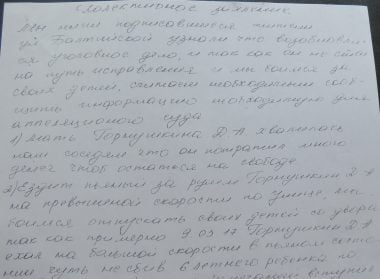 Коллективное заявление
Мы ниже подписавшиеся жители
ул Балтийской узнали что возобновил-
ся уголовное дело, и так как он не стал
на путь исправления и мы боимся за
своих детей, считаем необходимым сооб-
щить информацию необходимую для
апелляционого суда
1) Мать Горпушкина Д-А хвалилась
нам соседям что он потратил много
денег чтоб остаться на свободе.
2) Ездит пьяным за рулем Горпушкин Д-А
на превышеной скорости по улице, мы
боимся отпускать своих детей со двора
так как примерно 9 03 17 Горпушкин Д А
ехал на большой скорости в пьяном состо-
нии чуть не сбив 8 летнего ребенка по